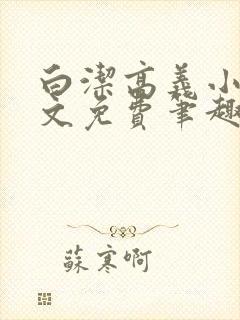 白潔高義小
文免費筆趣
蘇寒啊